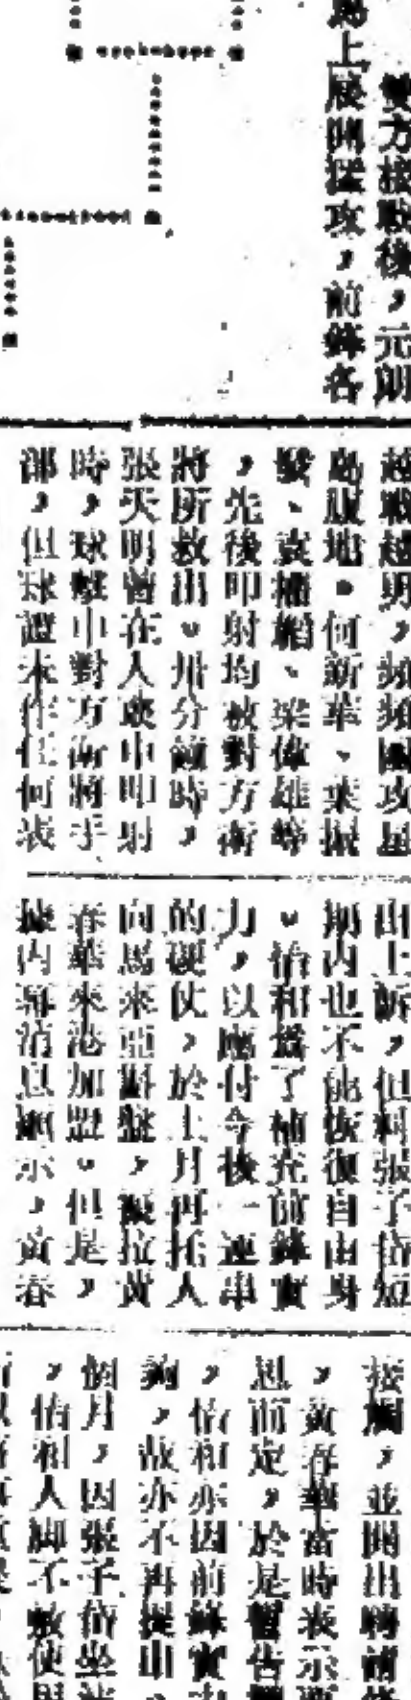 雙方接戰後，元朗
馬上展開猛攻，前鋒各
越戰越勇，頻頻圍攻星
島腹地。何新華、
、梁偉雄等
，先後叩射均被對方衛
將所救出。卅分鐘時，
張天明曾在人叢中叩射
時，球擊中對方衛將手
部，但球證未作任何表
由上訴，但料張子岱短
期內也不能恢復自由身
。怡和為了補充前鋒實
力，以應付今後一連串
的硬仗，於上月再托人
向馬來亞斟盤，擬拉黃
春華來港加盟。但是，
據內幕消息顯示，黃春
接觸，並開出聘
，黃春華當時表示
而定，於是暫告
，怡和亦因前鋒實力
夠，故亦不再提出，
個月，因張子岱坐
，怡和人腳不敷使用